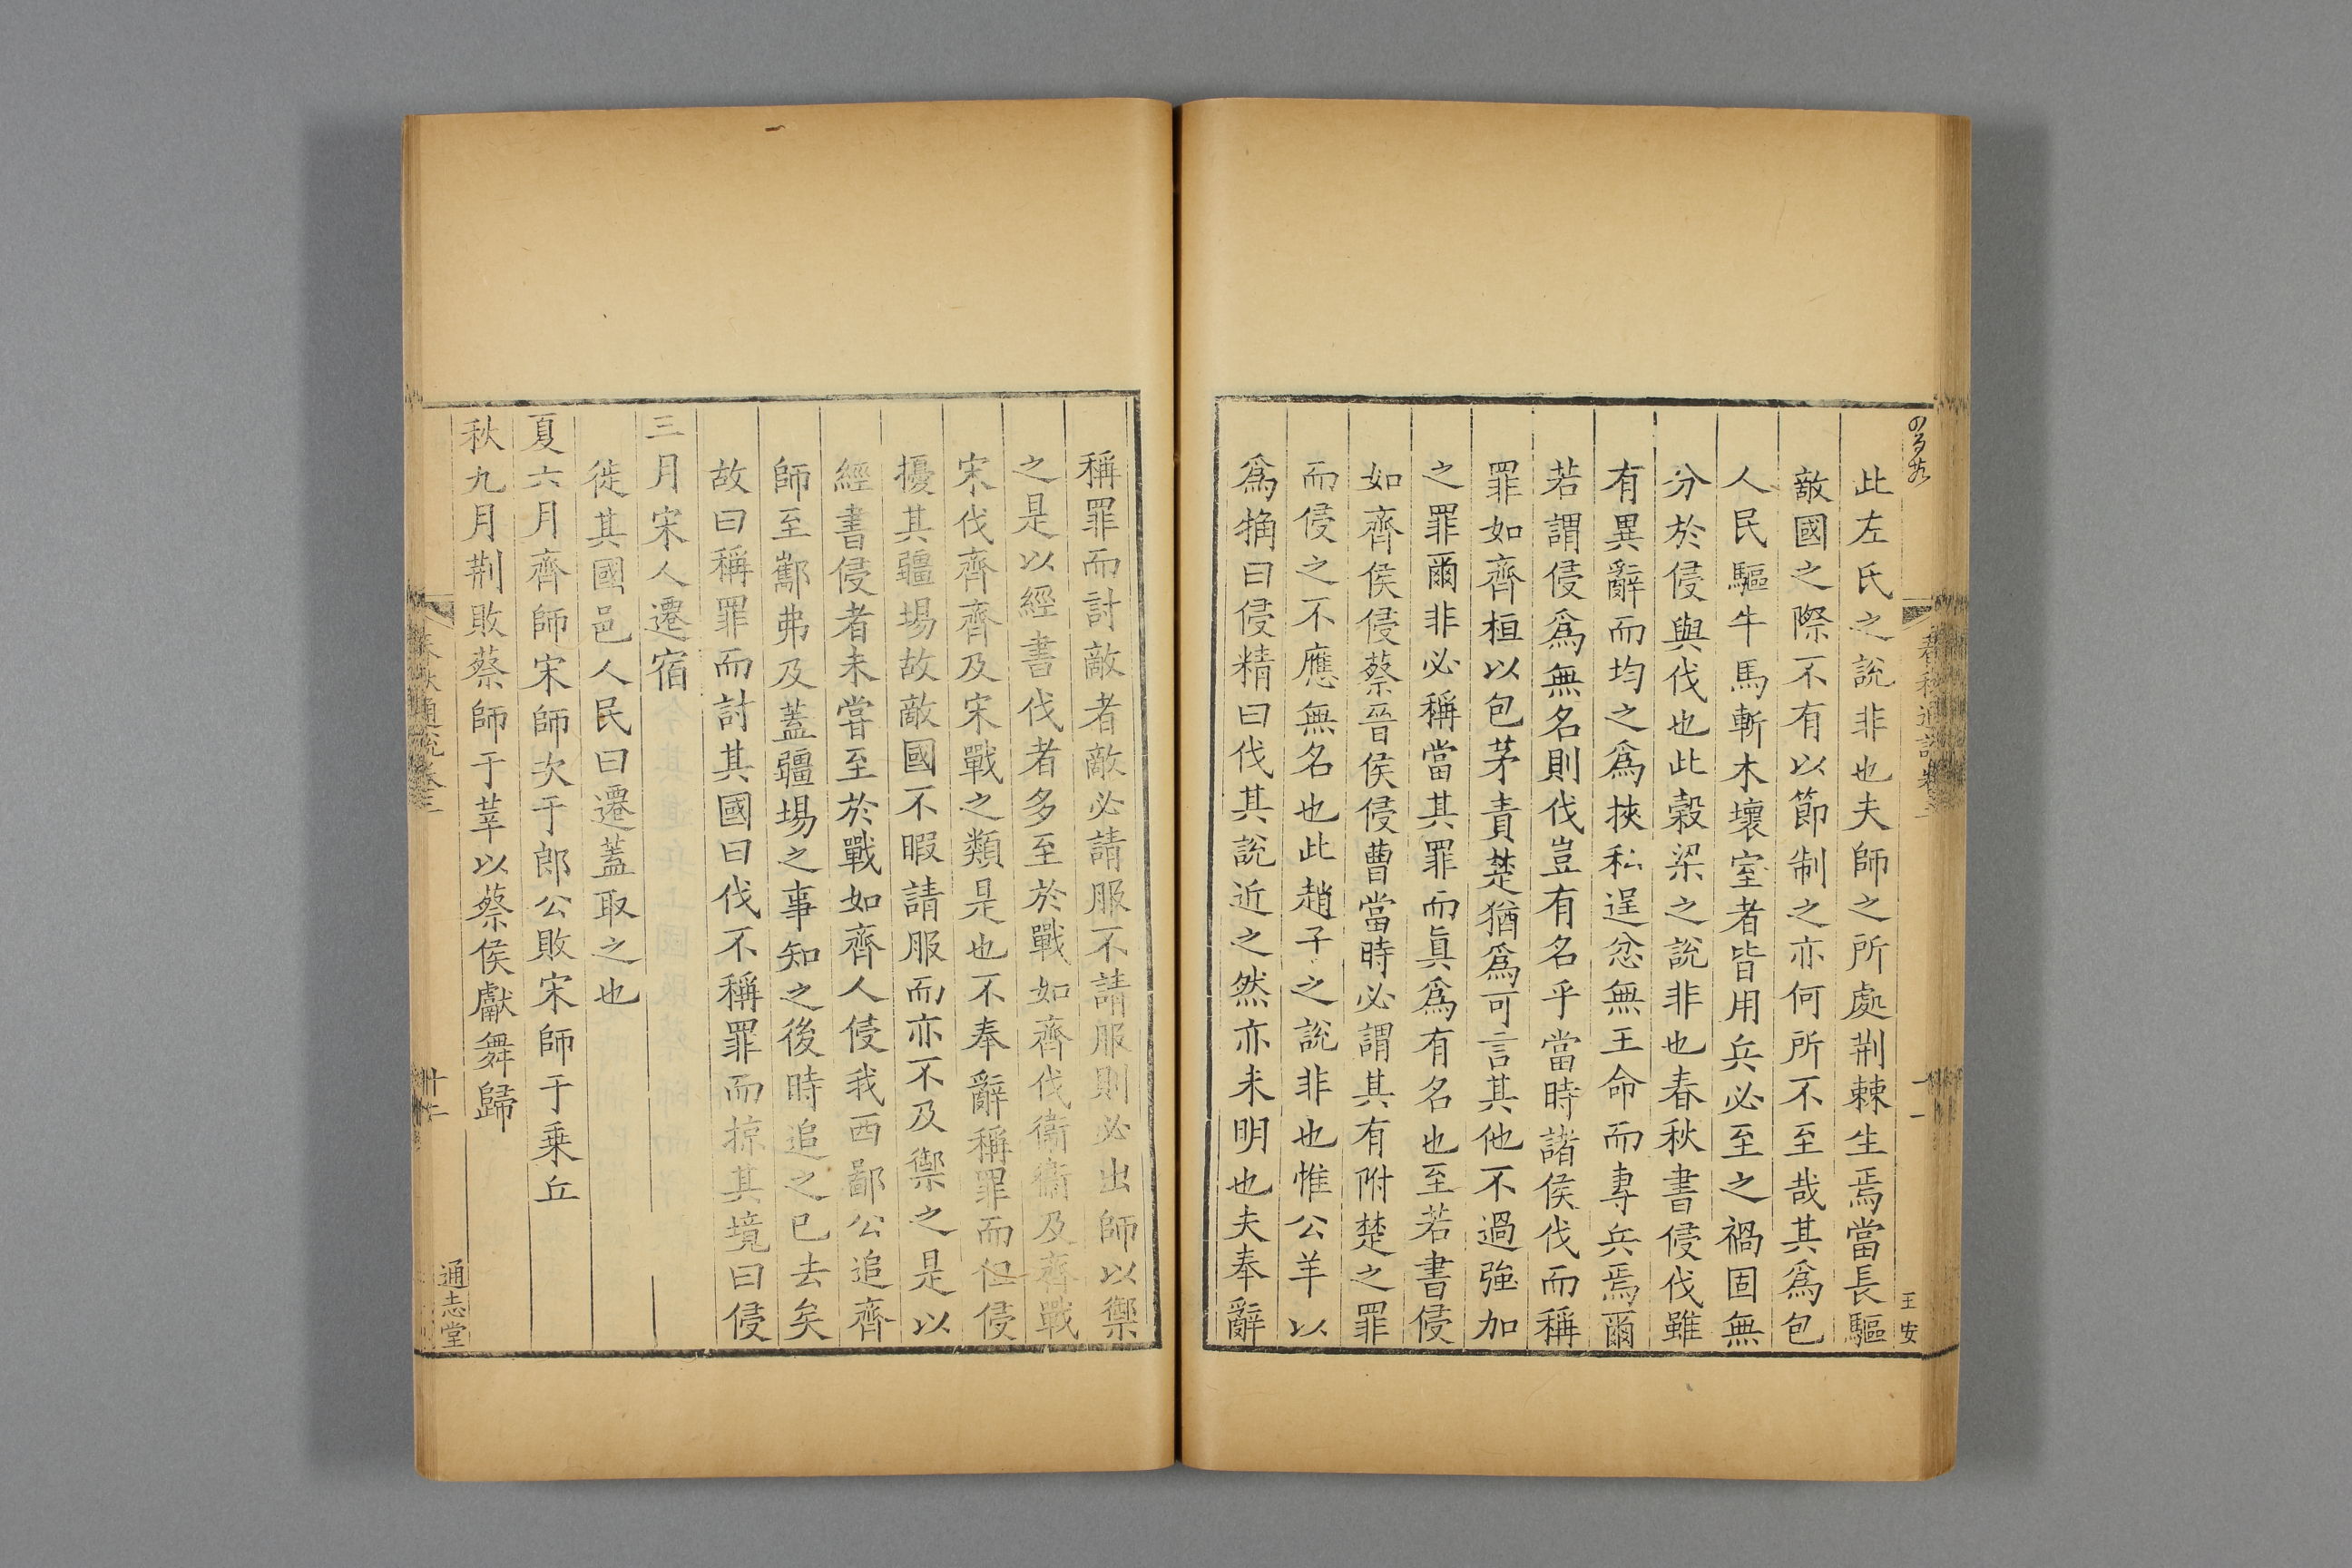 此左氏之說非也夫師之所處荆棘生焉當長驅
敵國之際不有以節制之亦何所不至哉其爲包
人民驅牛馬斬木壞室者皆用兵必至之禍固無
分於侵與伐也此穀梁之說非也春秋書侵伐雖
有異辭而均之爲挾私逞忿無王命而專兵焉爾
若謂侵爲無名則伐豈有名乎當時諸侯伐而稱
罪如齊桓以包茅責楚猶爲可言其他不過強加
之罪爾非必稱當其罪而眞爲有名也至若書侵
如齊侯侵蔡晉侯侵曹當時必謂其有附楚之罪
而侵之不應無名也此趙子之說非也惟公羊以
爲觕曰侵精曰伐其說近之然亦未明也夫奉辭
王安
稱罪而討敵者敵必請服不請服則必出師以禦
之是以經書伐者多至於戰如齊伐衞衞及齊戰
宋伐齊齊及宋戰之類是也不奉辭稱罪而但侵
擾其疆場故敵國不暇請服而亦不及禦之是以
經書侵者未嘗至於戰如齊人侵我西鄙公追齊
師至酅弗及蓋疆場之事知之後時追之已去矣
故曰稱罪而討其國曰伐不稱罪而掠其境曰侵
三月宋人遷宿
徙其國邑人民曰遷蓋取之也
夏六月齊師宋師次于郎公敗宋師于乗丘
秋九月荆敗蔡師于莘以蔡侯獻舞歸
春秋通說卷三
十二
通志堂